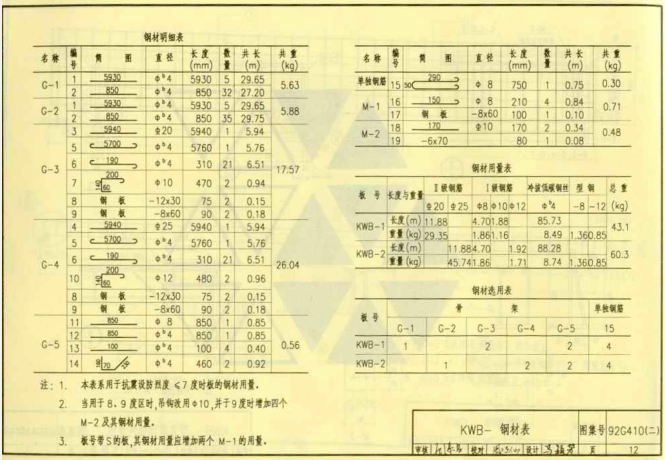 钢材明细表
名称 编号 简图 直径 长度(mm) 数量 共长(m) 共重(kg)
G-1 1 5930 Φᵇ4 5930 5 29.65 5.63
2 850 Φᵇ4 850 32 27.20
G-2 1 5930 Φᵇ4 5930 5 29.65 5.88
2 850 Φᵇ4 850 35 29.75
G-3 3 5940 Φ20 5940 1 5.94 17.57
5 5700 Φᵇ4 5760 1 5.76
6 190 Φᵇ4 310 21 6.51
7 200 60 Φ10 470 2 0.94
8 钢板 -12x30 75 2 0.15
9 钢板 -8x60 90 2 0.18
G-4 4 5940 Φ25 5940 1 5.94 26.04
5 5700 Φᵇ4 5760 1 5.76
6 190 Φᵇ4 310 21 6.51
10 200 60 Φ12 480 2 0.96
8 钢板 -12x30 75 2 0.15
9 钢板 -8x60 90 2 0.18
G-5 11 850 Φ8 850 1 0.85 0.56
12 850 Φᵇ4 850 1 0.85
13 100 Φᵇ4 100 4 0.40
14 70 Φᵇ4 460 2 0.92
注: 1. 本表系用于抗震设防烈度 ≤7度时板的钢材用量。
2. 当用于8、9度区时,吊钩改用Φ10,并于9度时增加四个
M-2及其钢材用量。
3. 板号带S的板,其钢材用量应增加两个 M-1的用量。
名称 编号 简图 直径 长度(mm) 数量 共长(m) 共重(kg)
单独钢筋 15 50 290 Φ8 750 1 0.75 0.30
M-1 16 150 Φ8 210 4 0.84 0.71
17 钢板 -8x60 100 1 0.10
M-2 18 170 Φ10 170 2 0.34 0.48
19 -6x70 80 1 0.08
钢材用量表
板号 长度与重量 Ⅱ级钢筋 Ⅰ级钢筋 冷拔低碳钢丝 型钢 总重
Φ20 Φ25 Φ8 Φ10 Φ12 Φᵇ4 -8 -12 (kg)
KWB-1 长度(m) 11.88 4.70 1.88 85.73 43.1
重量(kg) 29.35 1.86 1.16 8.49 1.36 0.85
KWB-2 长度(m) 11.88 4.70 1.92 88.28 60.3
重量(kg) 45.74 1.86 1.71 8.74 1.36 0.85
钢材选用表
板号 骨架 单独钢筋
G-1 G-2 G-3 G-4 G-5 15
KWB-1 1 2 2 4
KWB-2 1 2 2 4
KWB- 钢材表 图集号 92G410(二)
审核 校对 设计 页 12